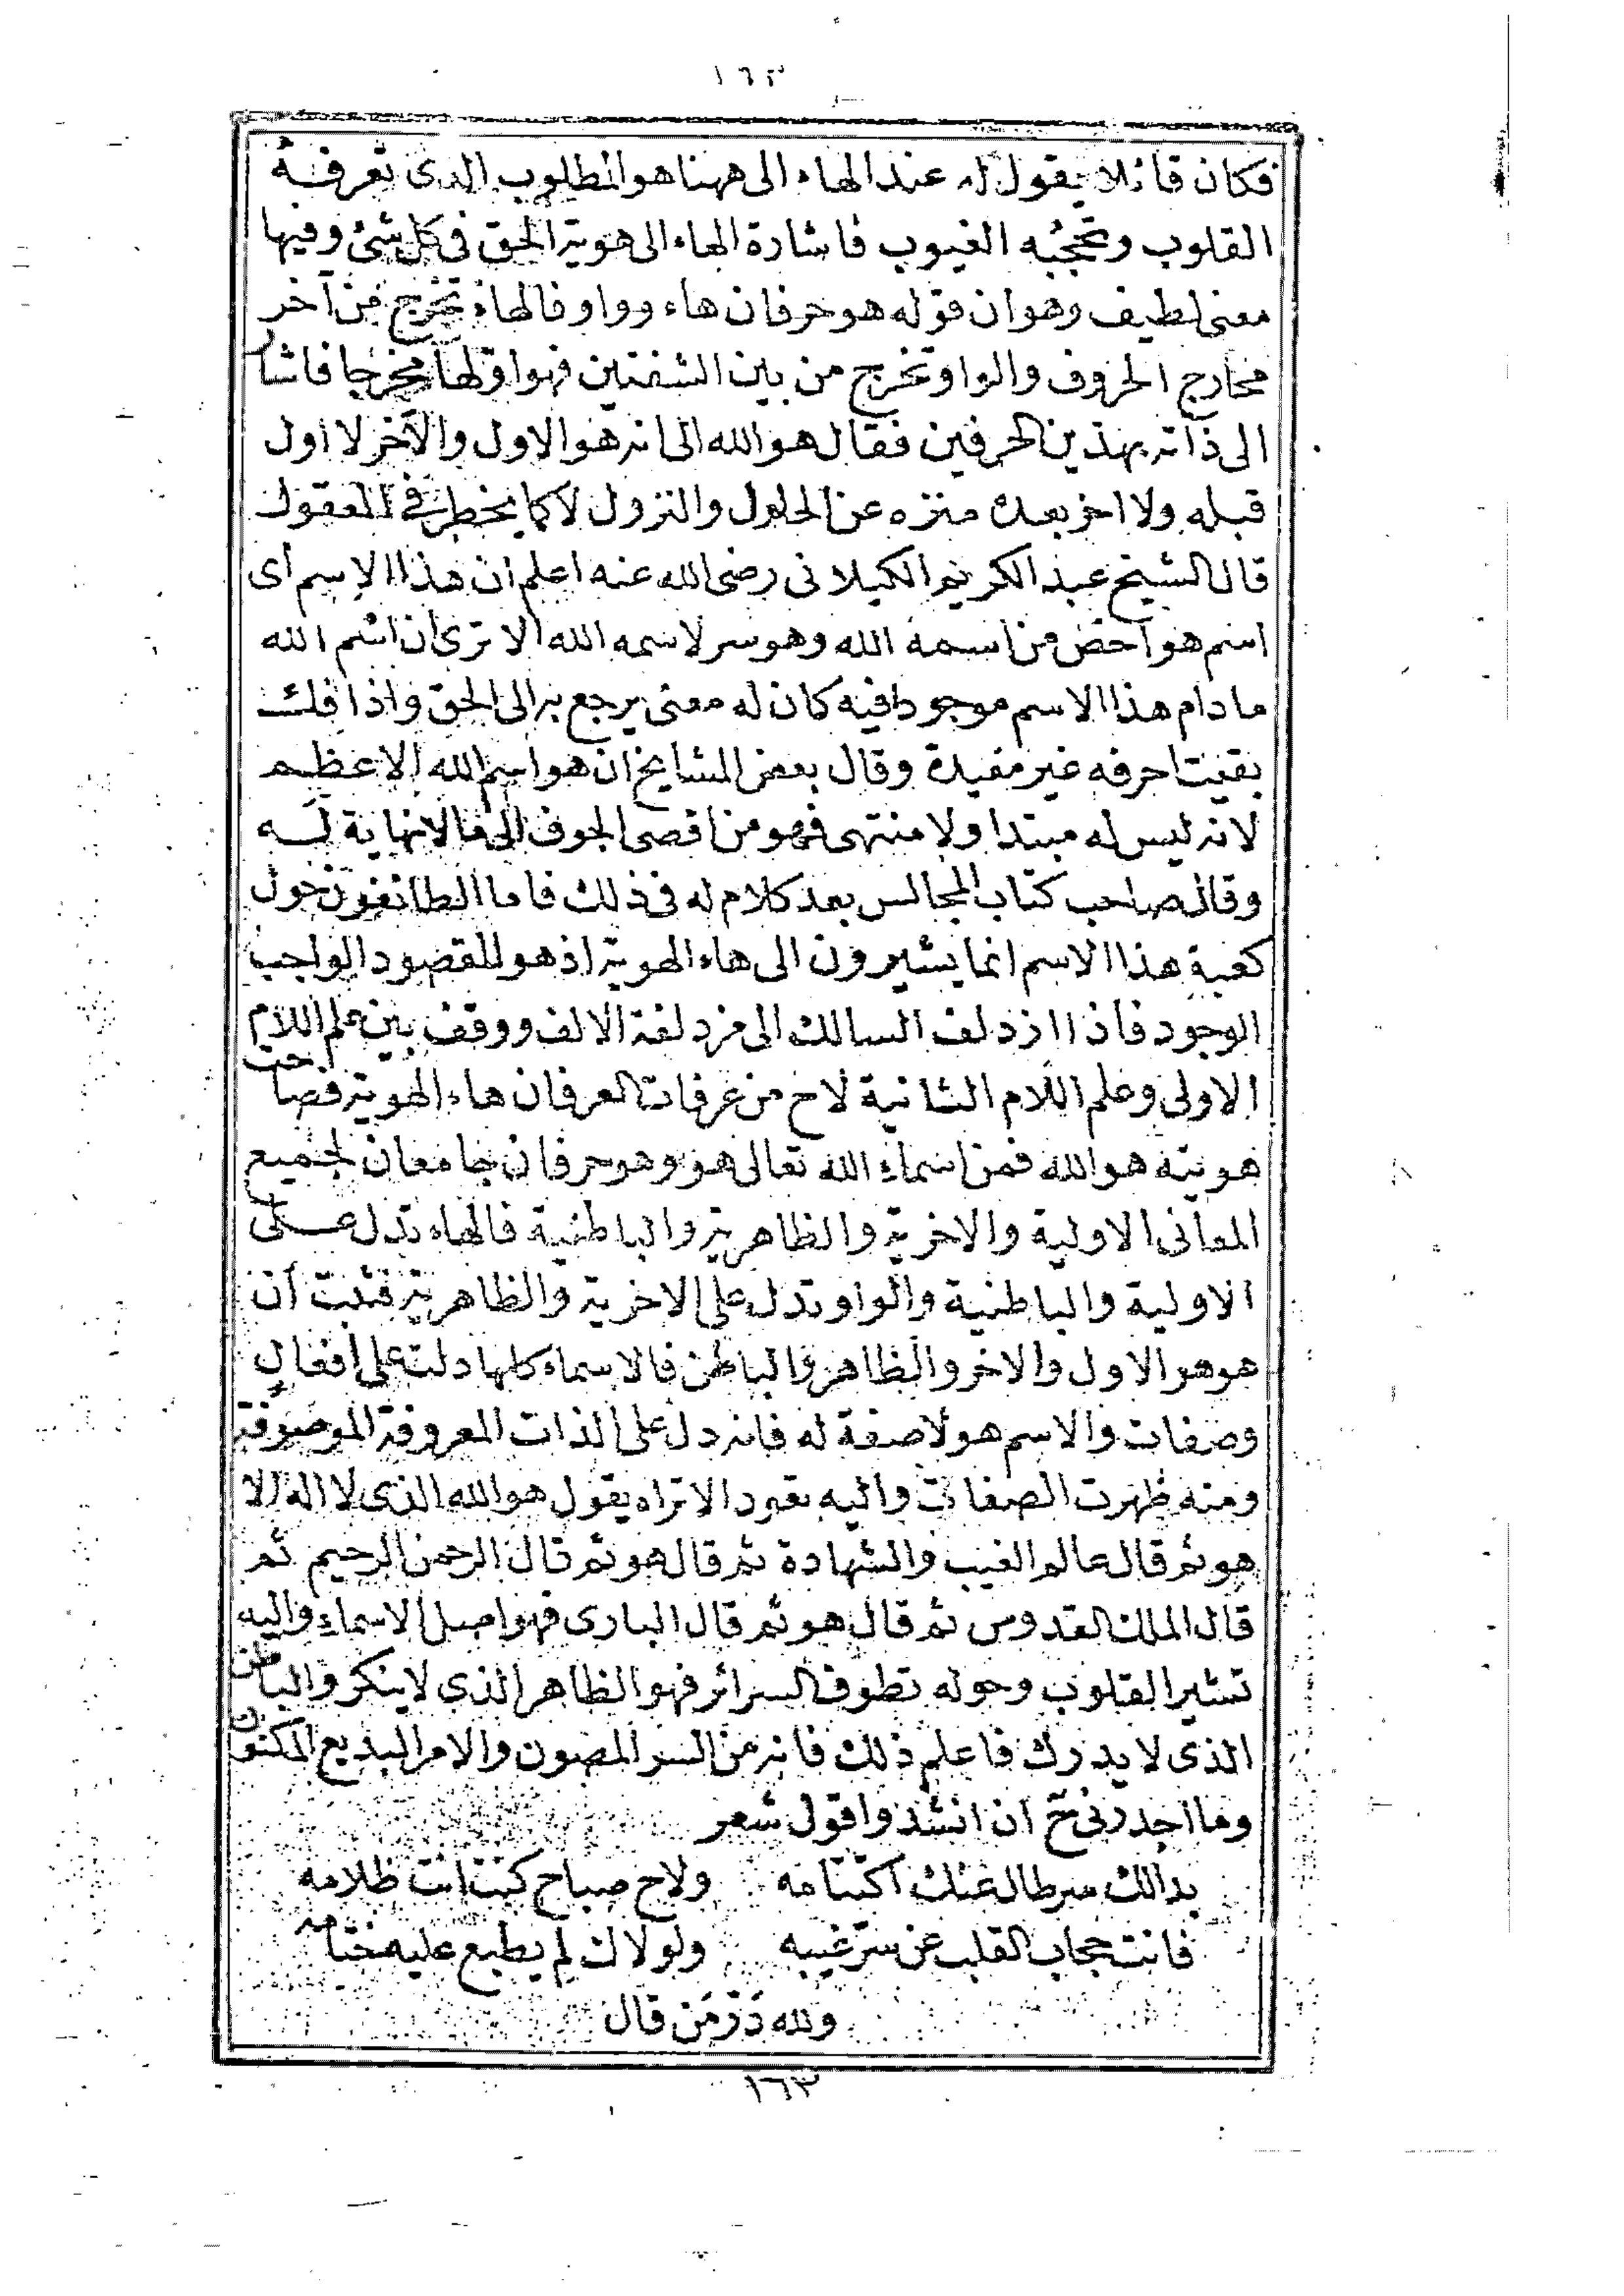 ١٦٣
فكان قائلا يقول له عند الهاء الى ههنا هو المطلوب الذى تعرفه
القلوب وتحجبه الغيوب فاشارة الهاء الى هوية الحق فى كل شئ وفيها
معنى لطيف وهو ان قوله هو حرفان هاء وواو فالهاء تخرج من آخر
مخارج الحروف والواو تخرج من بين الشفتين فهو اولها مخرجا فاشار
الى ذاته بهذين الحرفين فقال هو الله الى انه هو الاول والآخر لا اول
قبله ولا اخر بعده منزه عن الحلول والنزول لا كما يخطر فى العقول
قال الشيخ عبد الكريم الكيلانى رضى الله عنه اعلم ان هذا الاسم أى
اسم هو أخص من اسمه الله وهو سر لاسمه الله ألا ترى ان اسم الله
ما دام هذا الاسم موجودا فيه كان له معنى يرجع به الى الحق واذا فك
بقيت احرفه غير مفيدة وقال بعض المشايخ ان هو اسم الله الاعظم
لانه ليس له مبتدا ولا منتهى فهو من اقصى الجوف الى ما لا نهاية له
وقال صاحب كتاب المجالس بعد كلام له فى ذلك فاما الطائفون حول
كعبة هذا الاسم انما يشيرون الى هاء الهوية اذ هو المقصود الواجب
الوجود فاذا ازدلف السالك الى مزدلفة الالف ووقف بين علم اللام
الاولى وعلم اللام الثانية لاح من عرفات العرفان هاء الهوية فصاحت
هويته هو الله فمن اسماء الله تعالى هو وهو حرفان جامعان لجميع
المعانى الاولية والاخرية والظاهرية والباطنية فالهاء تدل على
الاولية والباطنية والواو تدل على الاخرية والظاهرية فثبت أن
هو هو الاول والاخر والظاهر والباطن فالاسماء كلها دلت على افعال
وصفات والاسم هو لا صفة له فانه دل على الذات المعروفة الموصوفة
ومنه ظهرت الصفات واليه تعود الا تراه يقول هو الله الذى لا اله الا
هو ثم قال عالم الغيب والشهادة ثم قال هو ثم قال الرحمن الرحيم ثم
قال الملك القدوس ثم قال هو ثم قال البارى فهو اصل الاسماء واليه
تشير القلوب وحوله تطوف السرائر فهو الظاهر الذى لا ينكر والباطن
الذى لا يدرك فاعلم ذلك فانه من السر المصون والامر البديع المكنون
وما اجدرنى ح ان انشد واقول شعر
بدا لك سر طال عنك اكتتامه ولاح صباح كنت انت ظلامه
فانت حجاب القلب عن سر غيبه ولولاك لم يطبع عليه ختامه
ولله در من قال
١٦٣